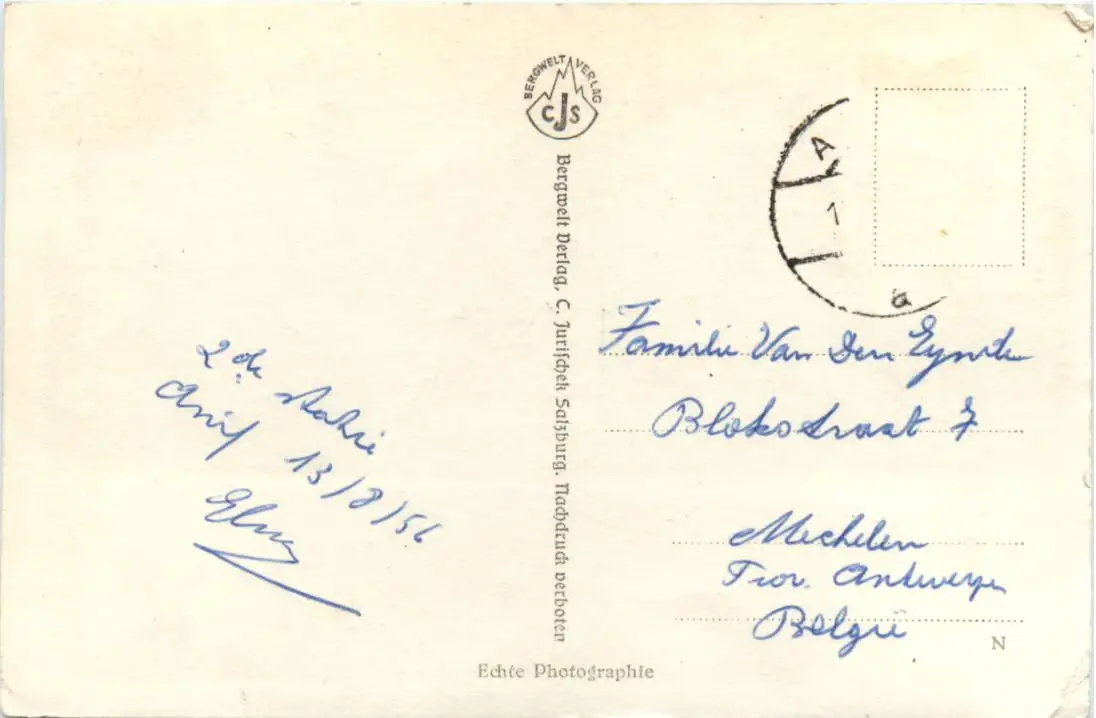 BERGWELT VERLAG
CJS
Bergwelt Verlag, C. Jurischek Salzburg. Nachdruck verboten
A
1
a
2de statie
Anif 13/8/56
Familie Van Den Eynde
Blokstraat 7
Mechelen
Prov. Antwerpen
België
N
Echte Photographie